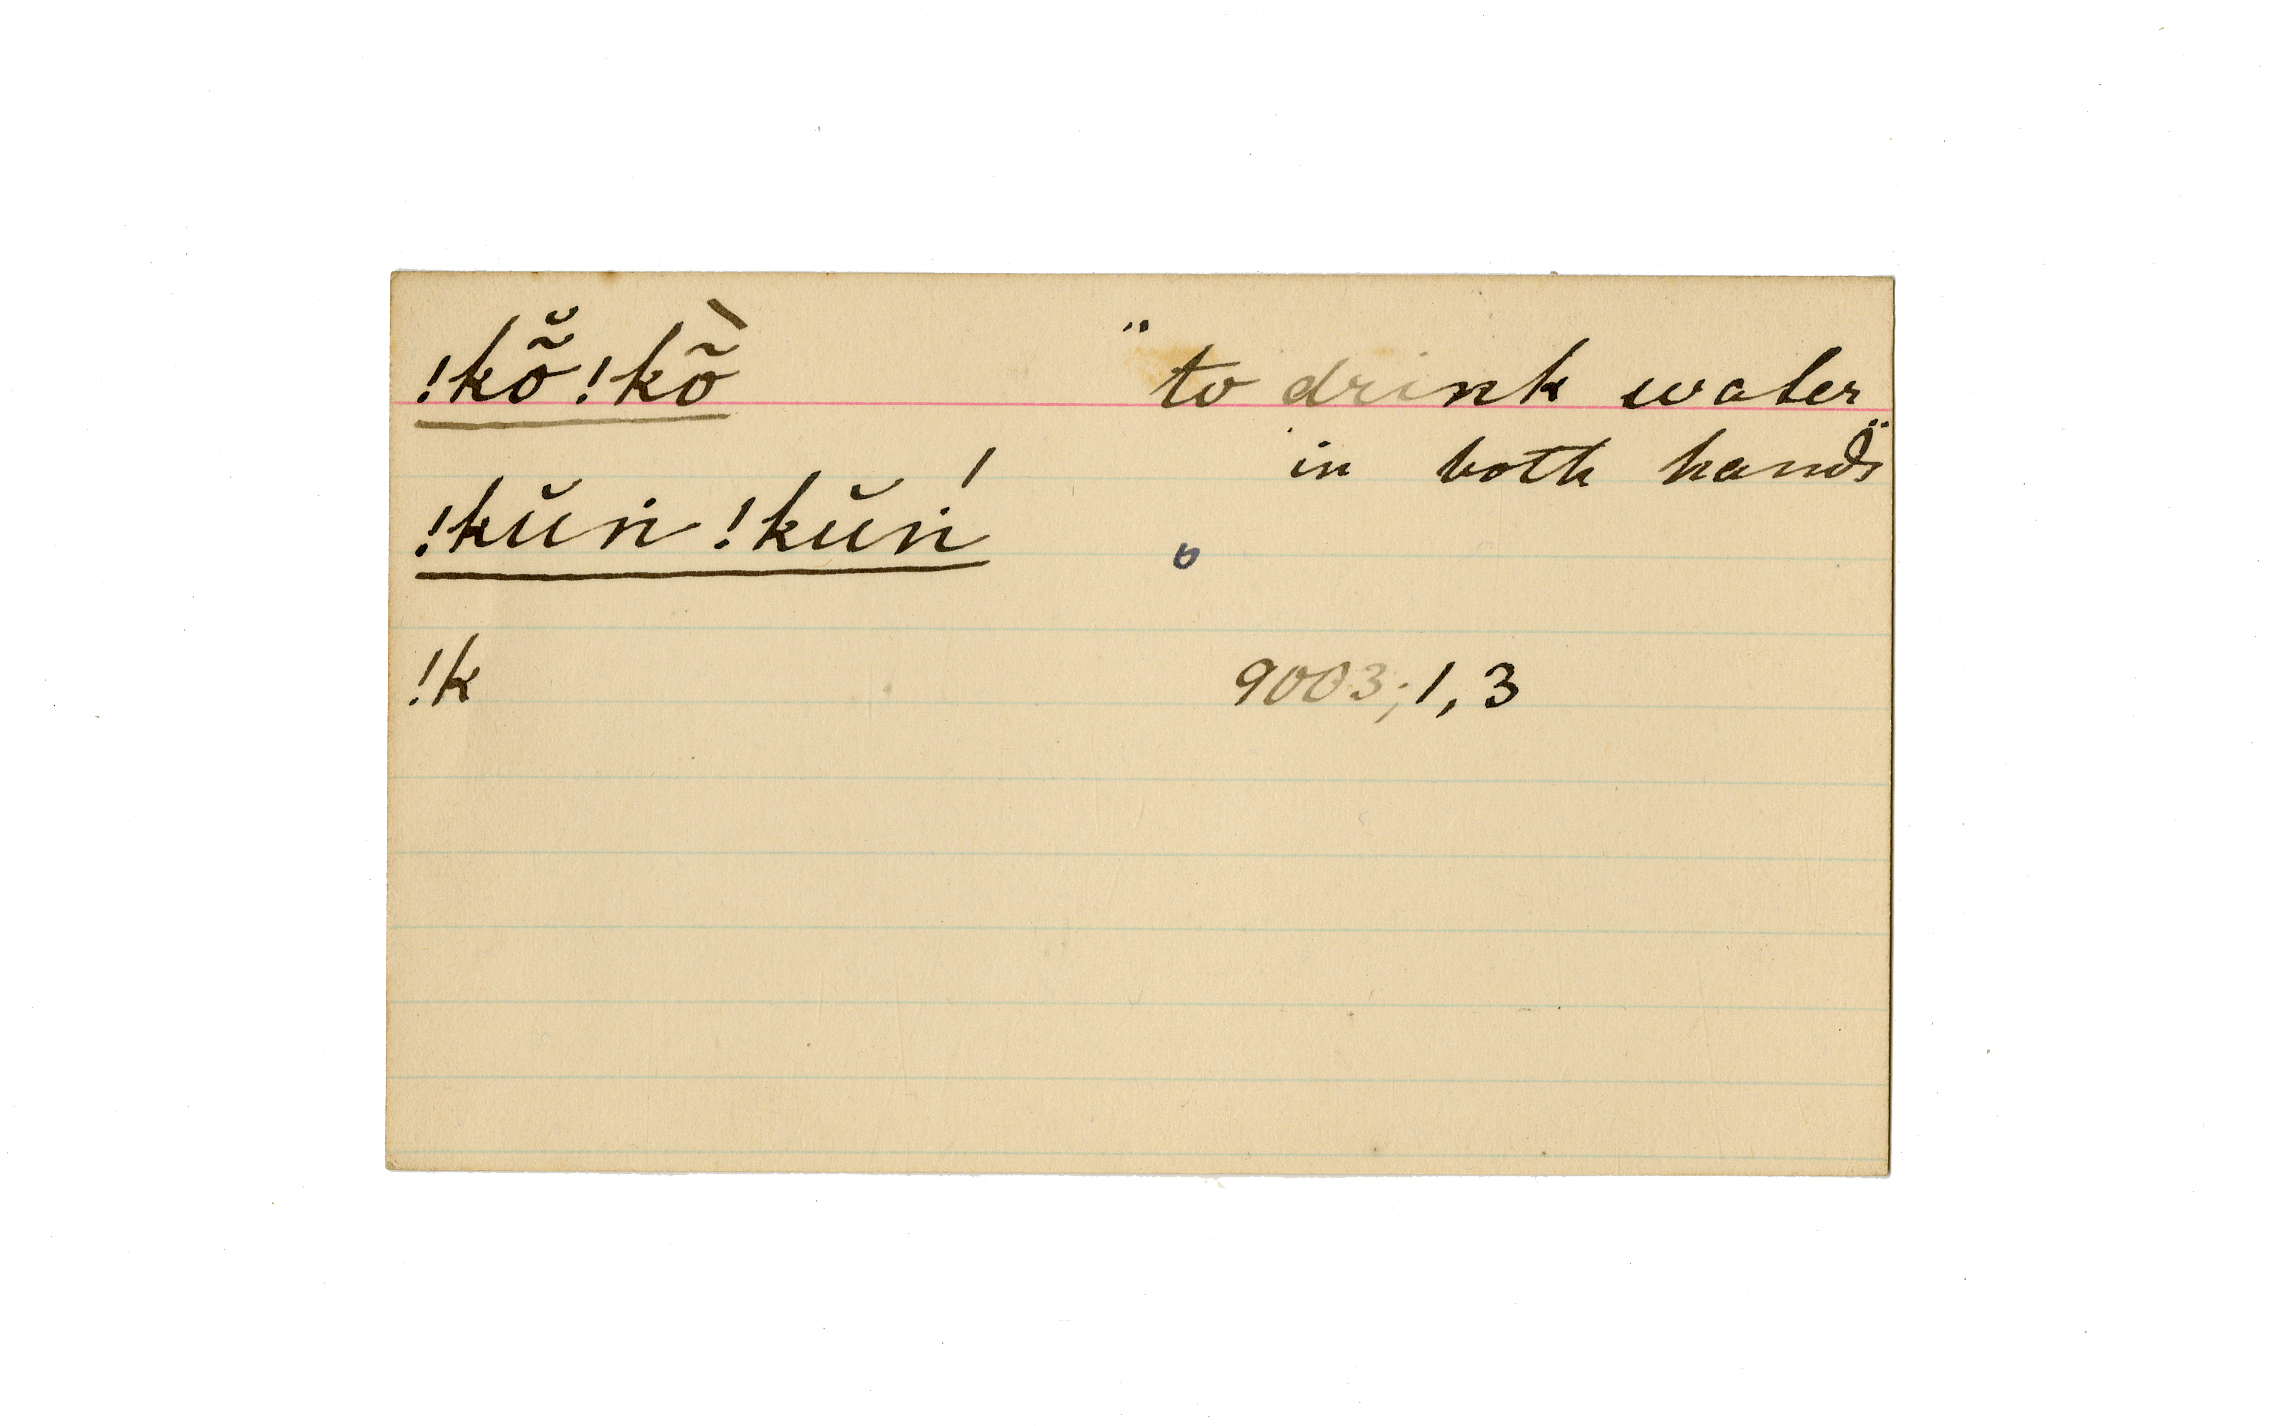 !kõ̆!kõ̀ "to drink water
in both hands"
!kŭṅ !kŭṅ́
!k 9003; 1, 3